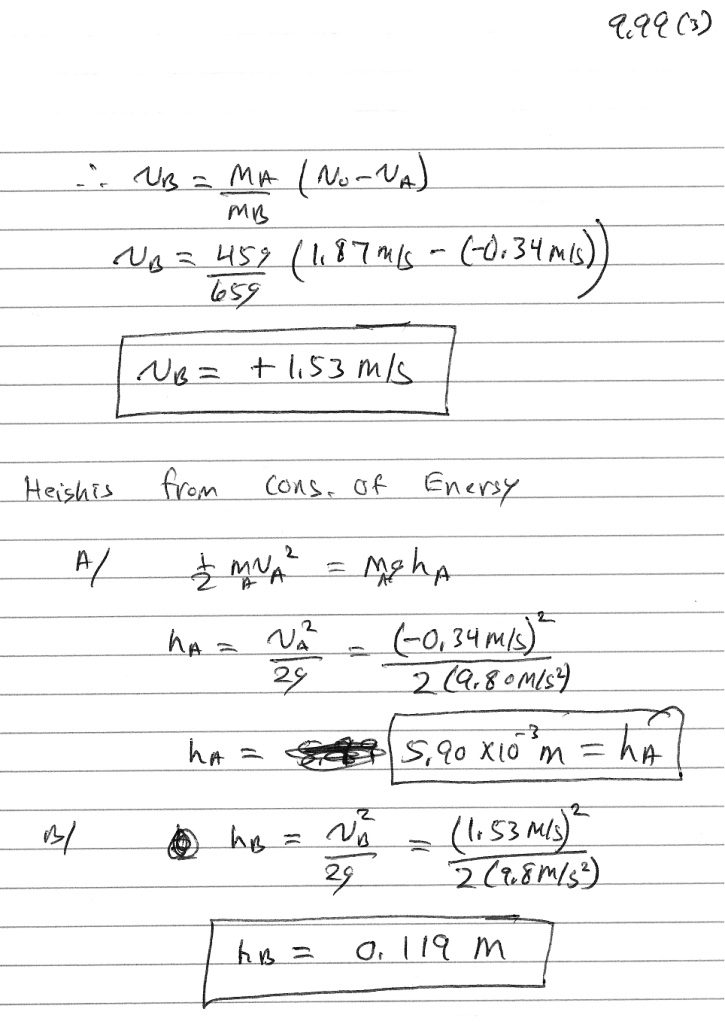 9.99 (3)
∴ vB = mA/mB (v0 - vA)
vB = 45g/65g (1.87 m/s - (-0.34 m/s))
vB = +1.53 m/s
Heights from cons. of Energy
A/ 1/2 mA vA² = mA g hA
hA = vA²/2g = (-0.34 m/s)²/2(9.80 m/s²)
hA = 5.90 x10⁻³ m = hA
B/ hB = vB²/2g = (1.53 m/s)²/2(9.8 m/s²)
hB = 0.119 m